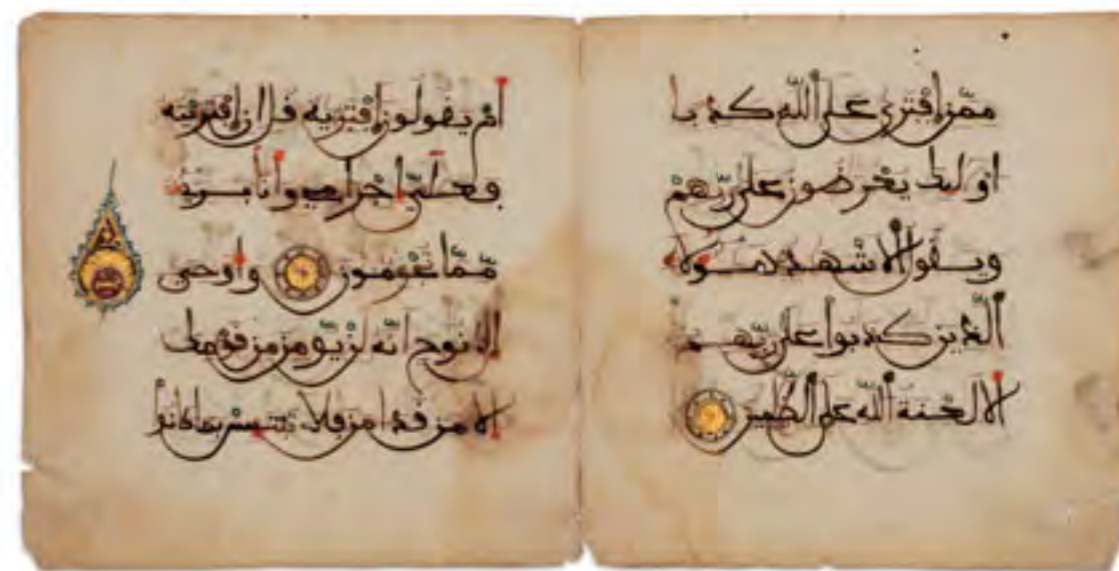 ممّن اِفترى على ألله كذبا
أولئك يعرضون على ربّهم
ويقول ألاشهد هؤلاء
ألذين كذبوا على ربّهم
ألا لعنة ألله على ألظّلمين
أم يقولون اِفتريه قل ان اِفتريته
فعليّ إجرامي وأنا بريء
مّمّا تجرمون وأوحي
إلى نوح أنّه لن يّومن من قومك
إلا من قد امن فلا تبتئس بما كانوا